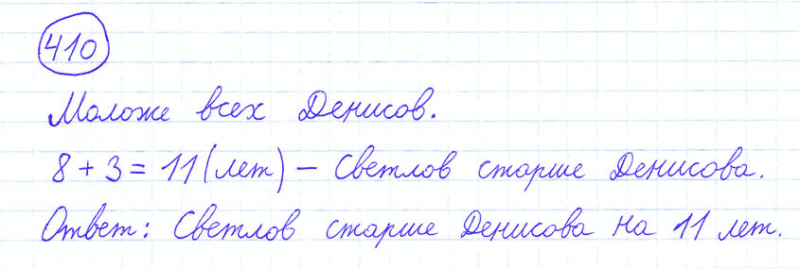 410
Моложе всех Денисов.
8 + 3 = 11 (лет) – Светлов старше Денисова.
Ответ: Светлов старше Денисова на 11 лет.